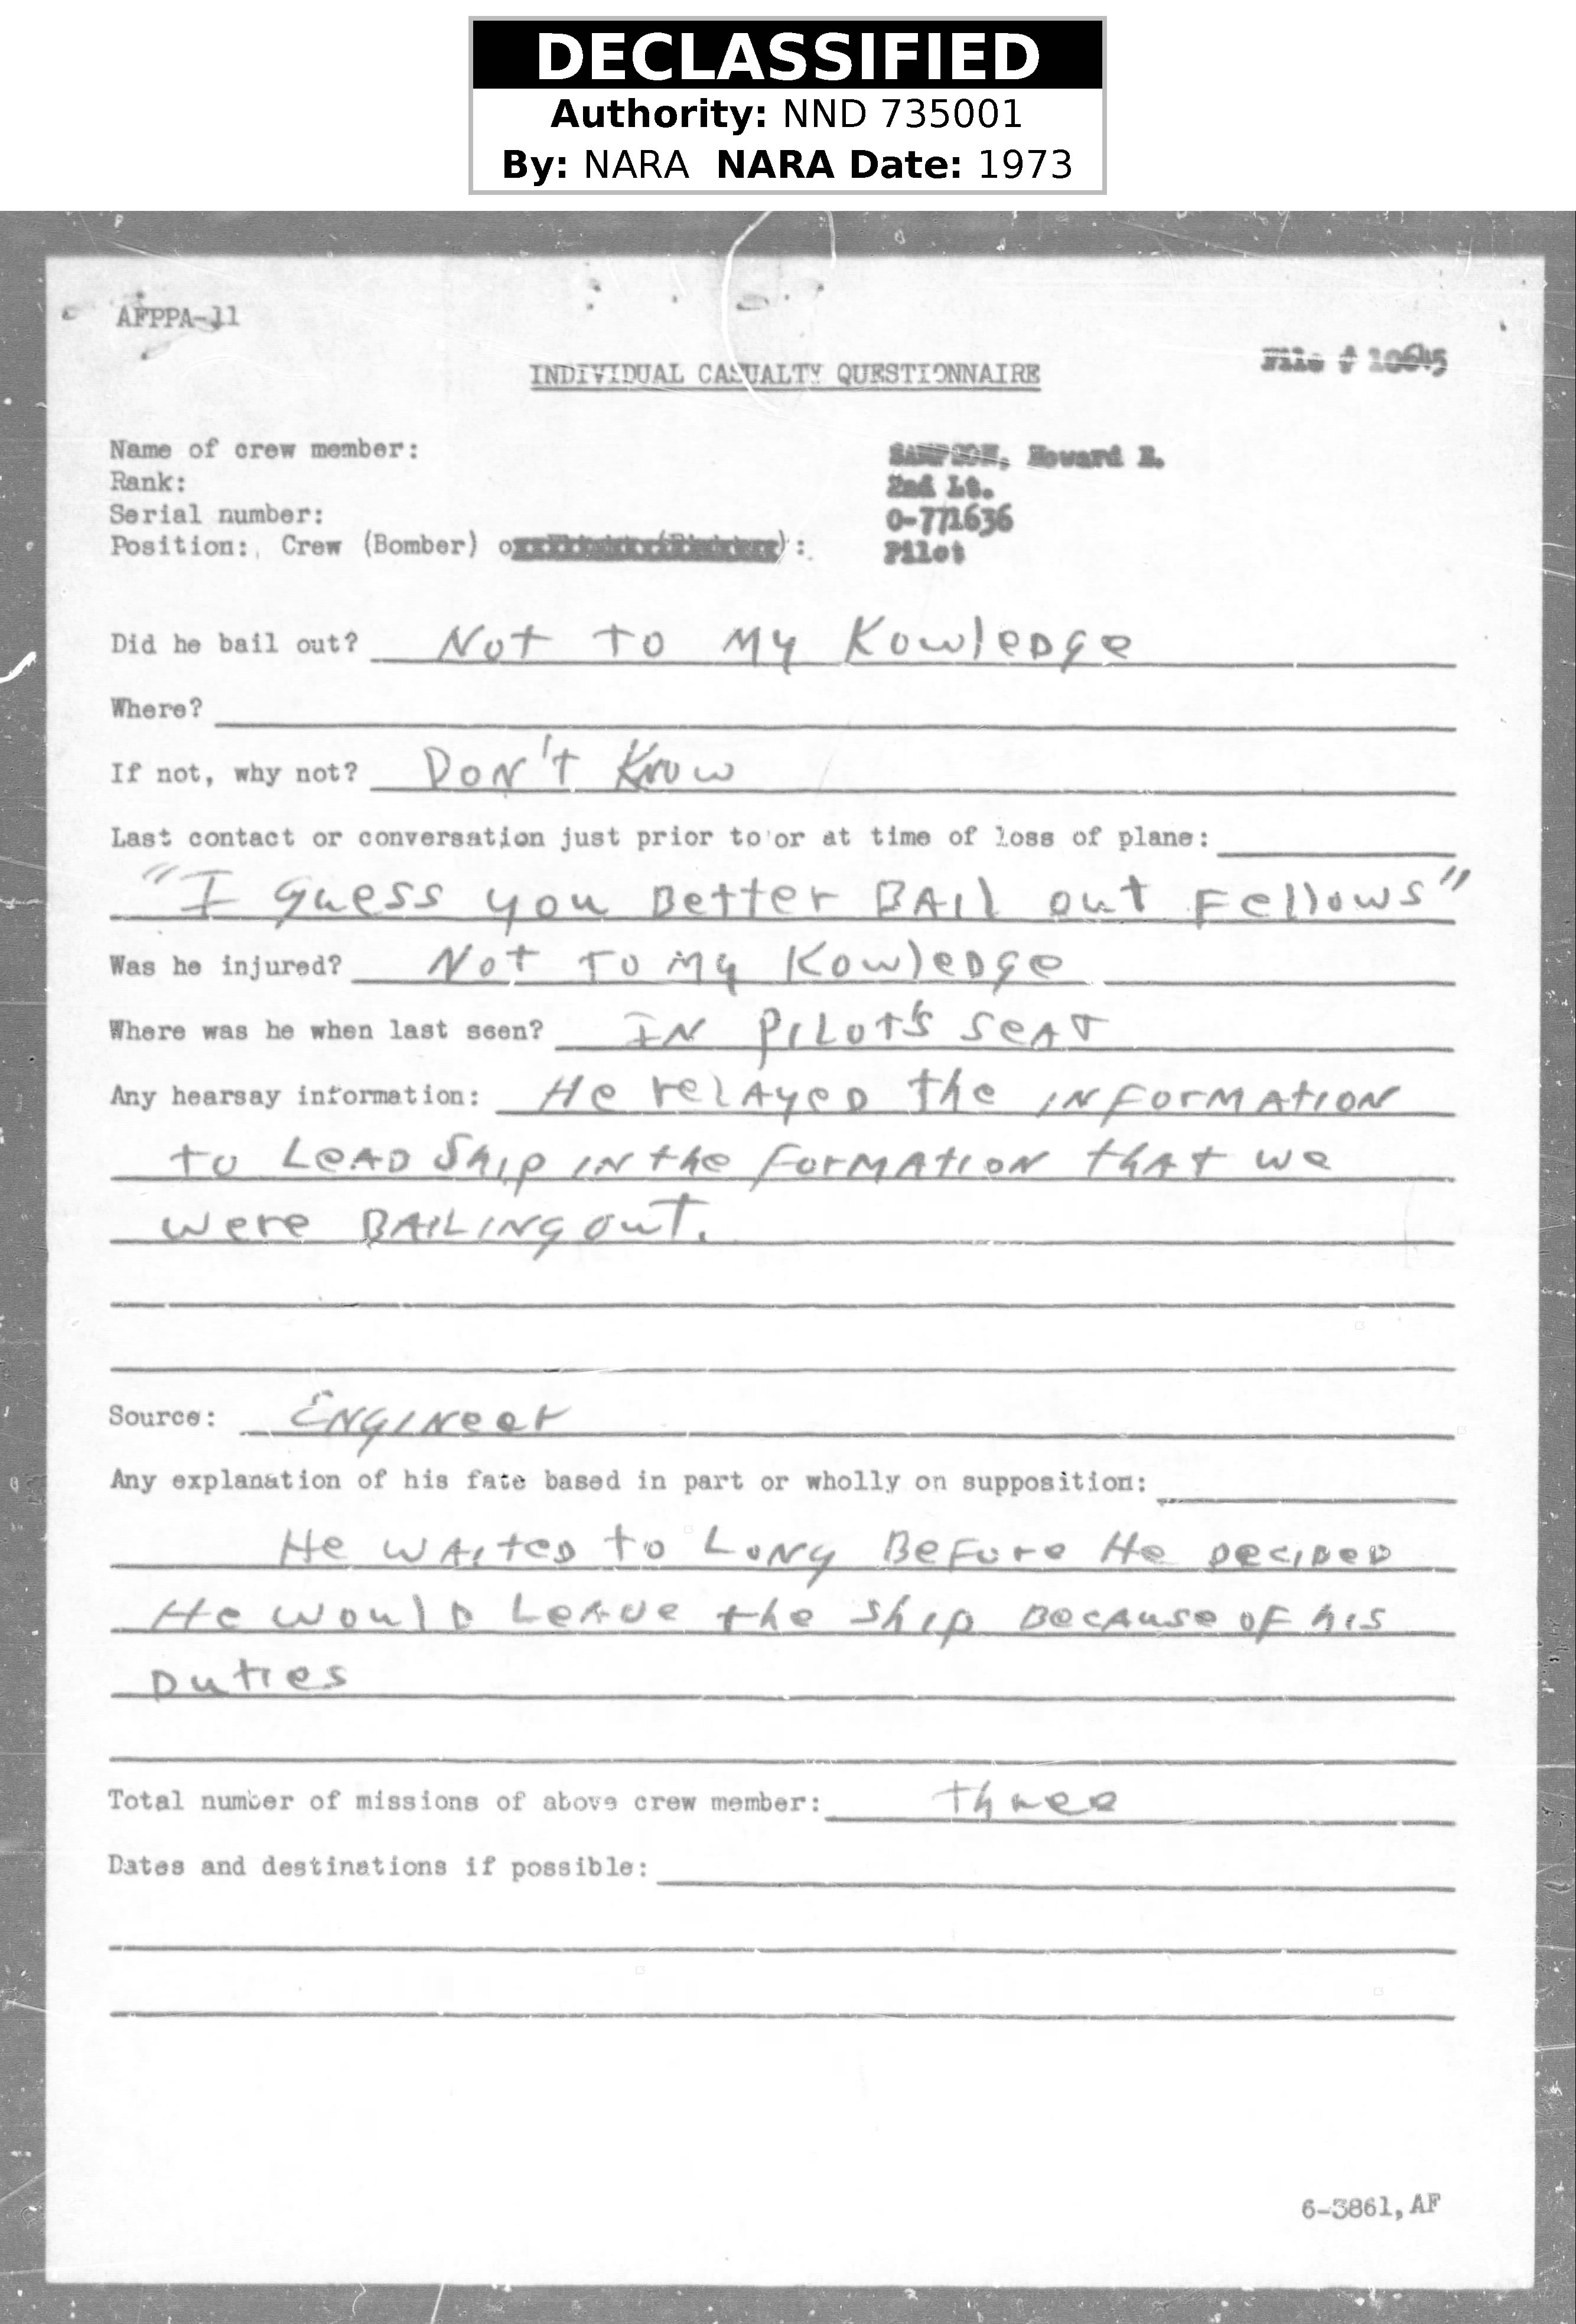 DECLASSIFIED
Authority: NND 735001
By: NARA NARA Date: 1973
AFPPA-11
File # 10645
INDIVIDUAL CASUALTY QUESTIONNAIRE
Name of crew member: SAMPSON, Howard E.
Rank: 2nd Lt.
Serial number: O-771636
Position: Crew (Bomber) : Pilot
Did he bail out? Not to My Kowledge
Where?
If not, why not? Don't Know
Last contact or conversation just prior to or at time of loss of plane:
"I guess you Better BAil out Fellows"
Was he injured? Not to My Kowledge
Where was he when last seen? IN PILOT'S SEAT
Any hearsay information: He relAyed the INFOrMAtION
to LeAD Ship IN the FOrMAtION thAt we
were BAILINg out.
Source: ENgINeer
Any explanation of his fate based in part or wholly on supposition:
He wAited to Long Before He Decided
He would LeAve the Ship BecAuse of his
Duties
Total number of missions of above crew member: three
Dates and destinations if possible:
6-3861, AF